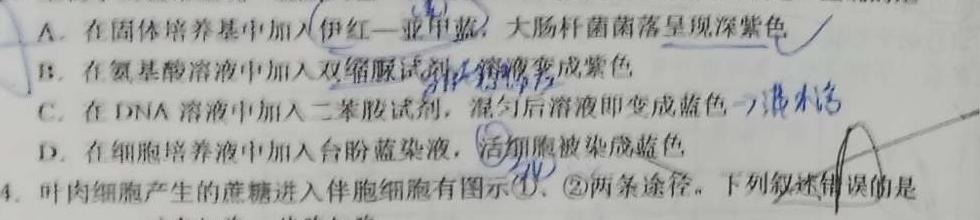 A. 在固体培养基中加入伊红—亚甲蓝，大肠杆菌菌落呈现深紫色
B. 在氨基酸溶液中加入双缩脲试剂，溶液变成紫色
C. 在 DNA 溶液中加入二苯胺试剂，混匀后溶液即变成蓝色 →沸水浴
D. 在细胞培养液中加入台盼蓝染液，活细胞被染成蓝色
4. 叶肉细胞产生的蔗糖进入伴胞细胞有图示①、②两条途径。下列叙述错误的是